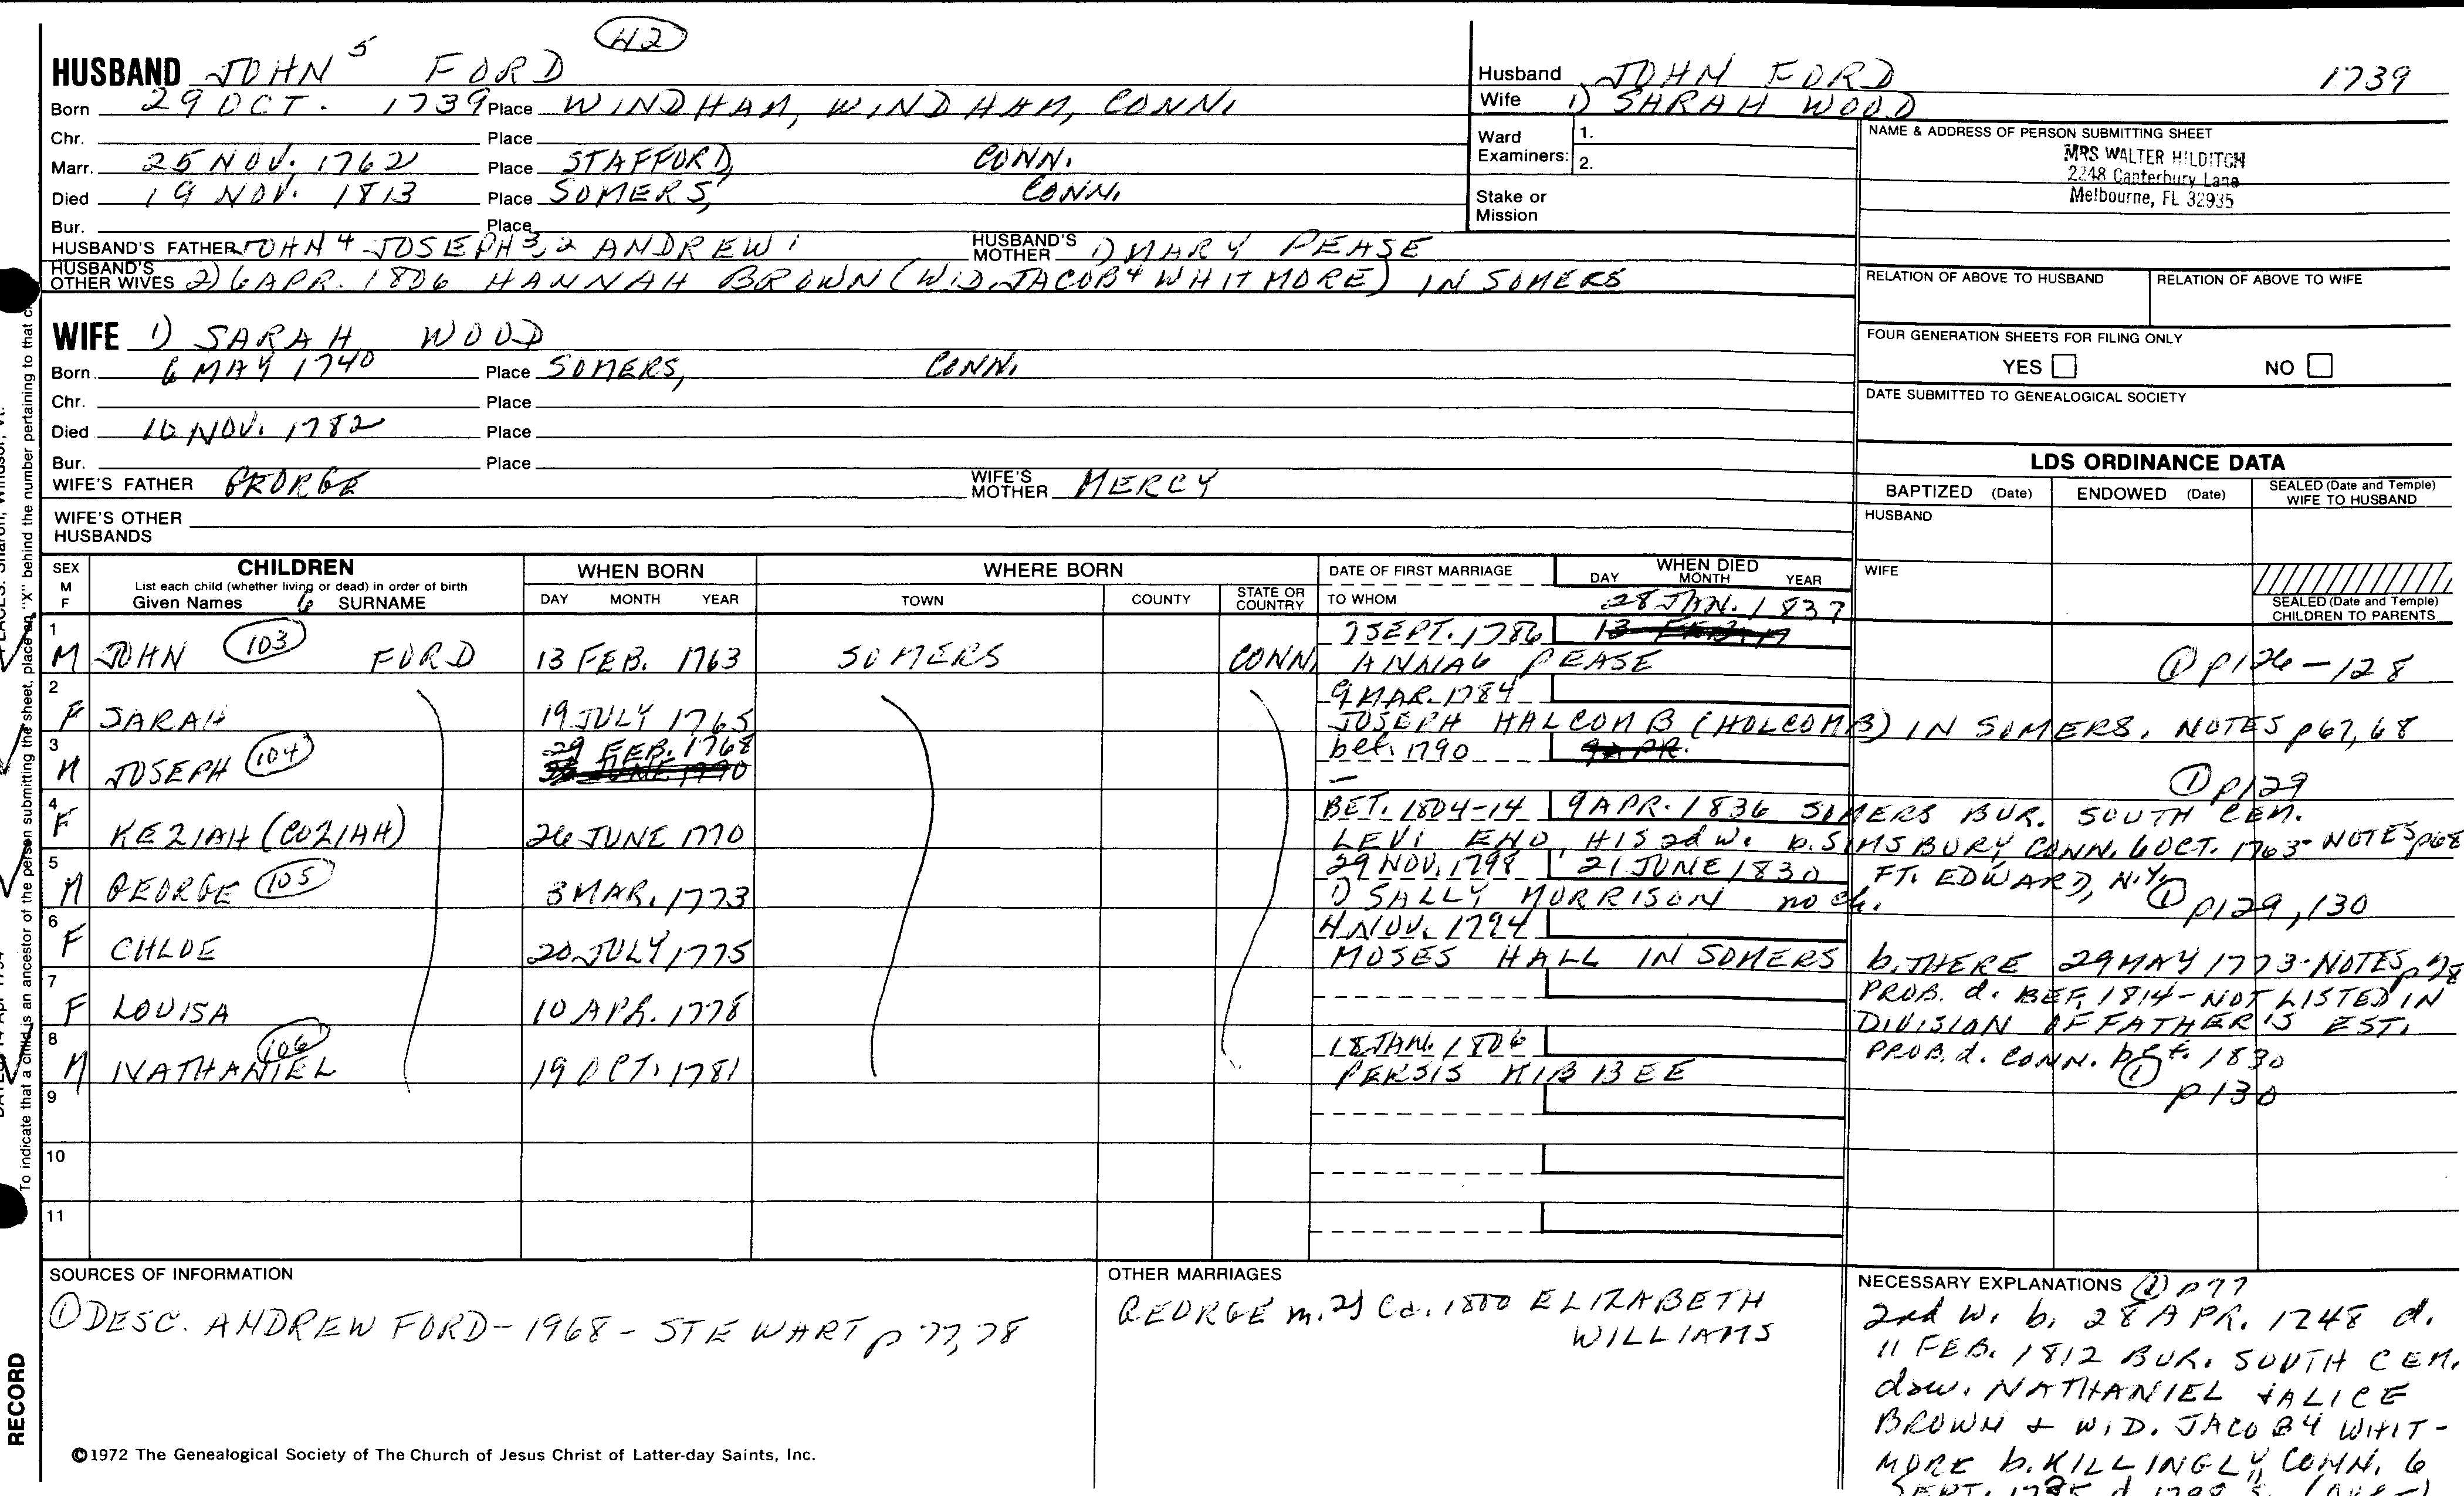 42
HUSBAND JOHN 5 FORD
Born 29 OCT. 1739 Place WINDHAM, WINDHAM, CONN.
Chr. Place
Marr. 25 NOV. 1762 Place STAFFORD, CONN.
Died 19 NOV. 1813 Place SOMERS, CONN.
Bur. Place
HUSBAND'S FATHER JOHN 4 JOSEPH 3, 2 ANDREW 1 HUSBAND'S MOTHER 1) MARY PEASE
HUSBAND'S OTHER WIVES 2) 6 APR. 1806 HANNAH BROWN (WID. JACOB 4 WHITMORE) IN SOMERS
Husband JOHN FORD 1739
Wife 1) SARAH WOOD
Ward Examiners: 1.
2.
Stake or Mission
NAME & ADDRESS OF PERSON SUBMITTING SHEET
MRS WALTER HILDITCH
2248 Canterbury Lane
Melbourne, FL 32935
RELATION OF ABOVE TO HUSBAND RELATION OF ABOVE TO WIFE
FOUR GENERATION SHEETS FOR FILING ONLY
YES NO
DATE SUBMITTED TO GENEALOGICAL SOCIETY
WIFE 1) SARAH WOOD
Born 6 MAY 1740 Place SOMERS, CONN.
Chr. Place
Died NOV. 1782 Place
Bur. Place
WIFE'S FATHER GEORGE WIFE'S MOTHER MERCY
WIFE'S OTHER HUSBANDS
LDS ORDINANCE DATA
BAPTIZED (Date) ENDOWED (Date) SEALED (Date and Temple) WIFE TO HUSBAND
HUSBAND
WIFE
SEALED (Date and Temple) CHILDREN TO PARENTS
SEX M F CHILDREN WHEN BORN WHERE BORN DATE OF FIRST MARRIAGE WHEN DIED
List each child (whether living or dead) in order of birth DAY MONTH YEAR
Given Names 6 SURNAME DAY MONTH YEAR TOWN COUNTY STATE OR COUNTRY TO WHOM
28 JAN. 1837
1 7 SEPT. 1786
M JOHN 103 FORD 13 FEB. 1763 SOMERS CONN. ANNA 6 PEASE 1 p126-128
2 9 MAR. 1784
F SARAH 19 JULY 1765 JOSEPH HALCOMB (HOLCOMB) IN SOMERS. NOTES p67, 68
3 29 FEB. 1768 bef. 1790 9 APR.
M JOSEPH 104 1 p129
4 BET. 1804-14 9 APR. 1836 SOMERS BUR. SOUTH CEM.
F KEZIAH (COZIAH) 26 JUNE 1770 LEVI ENO, HIS 2d w. b. SIMSBURY CONN. 6 OCT. 1763- NOTES p68
5 29 NOV. 1798 21 JUNE 1830 FT. EDWARD, N.Y.
M GEORGE 105 3 MAR. 1773 1) SALLY MORRISON no ch. 1 p129, 130
6 4 NOV. 1794
F CHLOE 20 JULY 1775 MOSES HALL IN SOMERS b. THERE 29 MAY 1773- NOTES p
7 PROB. d. BEF. 1814 - NOT LISTED IN
F LOUISA 10 APR. 1778 DIVISION OF FATHER'S EST.
8 18 JAN. 1806 PROB. d. CONN. bef. 1830
M NATHANIEL 106 19 OCT. 1781 PERSIS KIBBEE 1 p130
9
10
11
SOURCES OF INFORMATION
1 DESC. ANDREW FORD-1968- STEWART p 77, 78
OTHER MARRIAGES
GEORGE m. 2) Ca. 1800 ELIZABETH
WILLIAMS
NECESSARY EXPLANATIONS 1 p77
2nd W. b. 28 APR. 1748 d.
11 FEB. 1812 BUR. SOUTH CEM.
dau. NATHANIEL & ALICE
BROWN & WID. JACOB 4 WHIT-
MORE b. KILLINGLY, CONN. 6
©1972 The Genealogical Society of The Church of Jesus Christ of Latter-day Saints, Inc.
To indicate that a child is an ancestor of the person submitting the sheet, place an "X" behind the number pertaining to that
RECORD